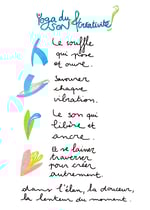 Yoga du
son & créativité
Le souffle
qui pose
et ouvre.
Savourer
chaque
vibration.
Le son qui
libère et
ancre.
Se laisser
traverser
pour créer
autrement.
dans l'élan, la douceur,
la lenteur du moment.